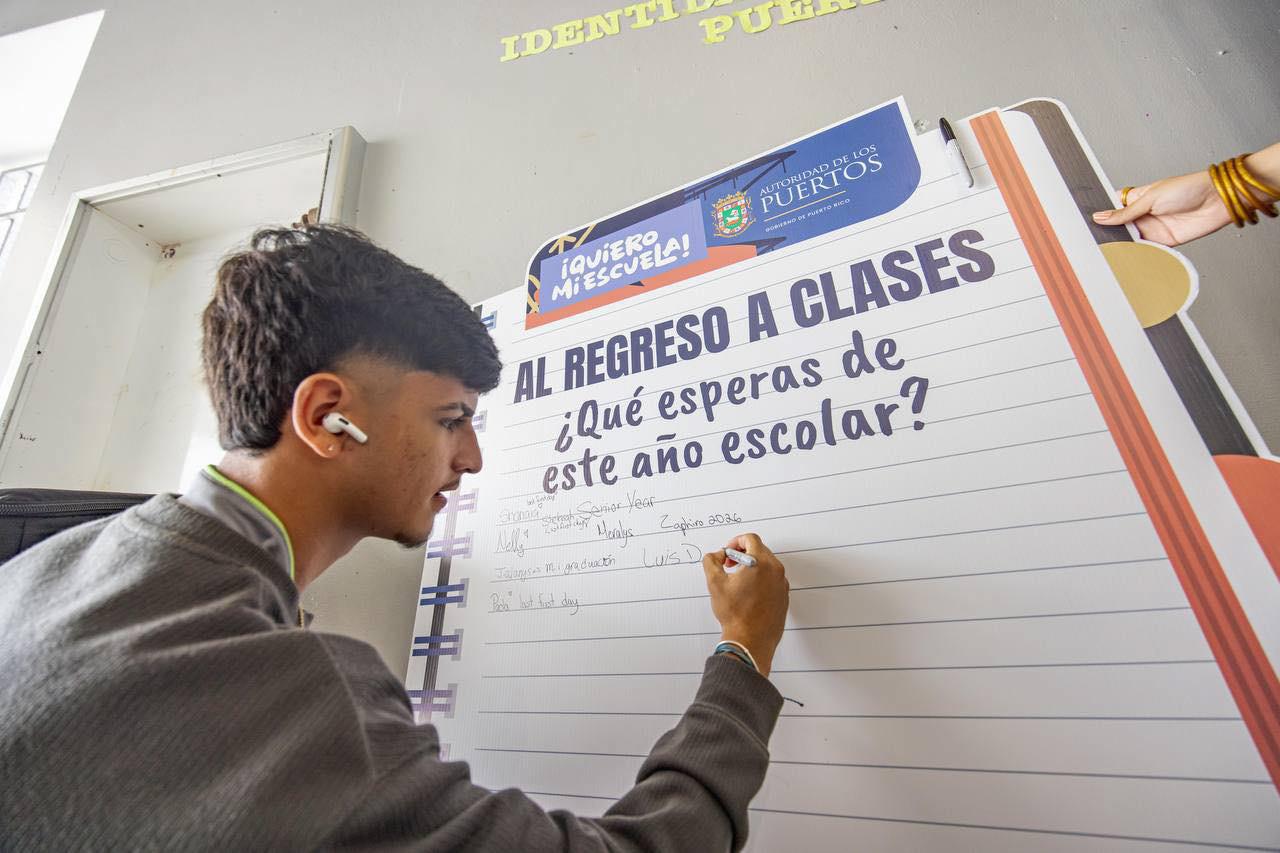 IDENTID
PUER
¡QUIERO
MI ESCUELA!
AUTORIDAD DE LOS
PUERTOS
GOBIERNO DE PUERTO RICO
AL REGRESO A CLASES
¿Qué esperas de
este año escolar?
Senior Year
Nelly Meralys Zaphiro 2026
mi graduación Luis D
last first day